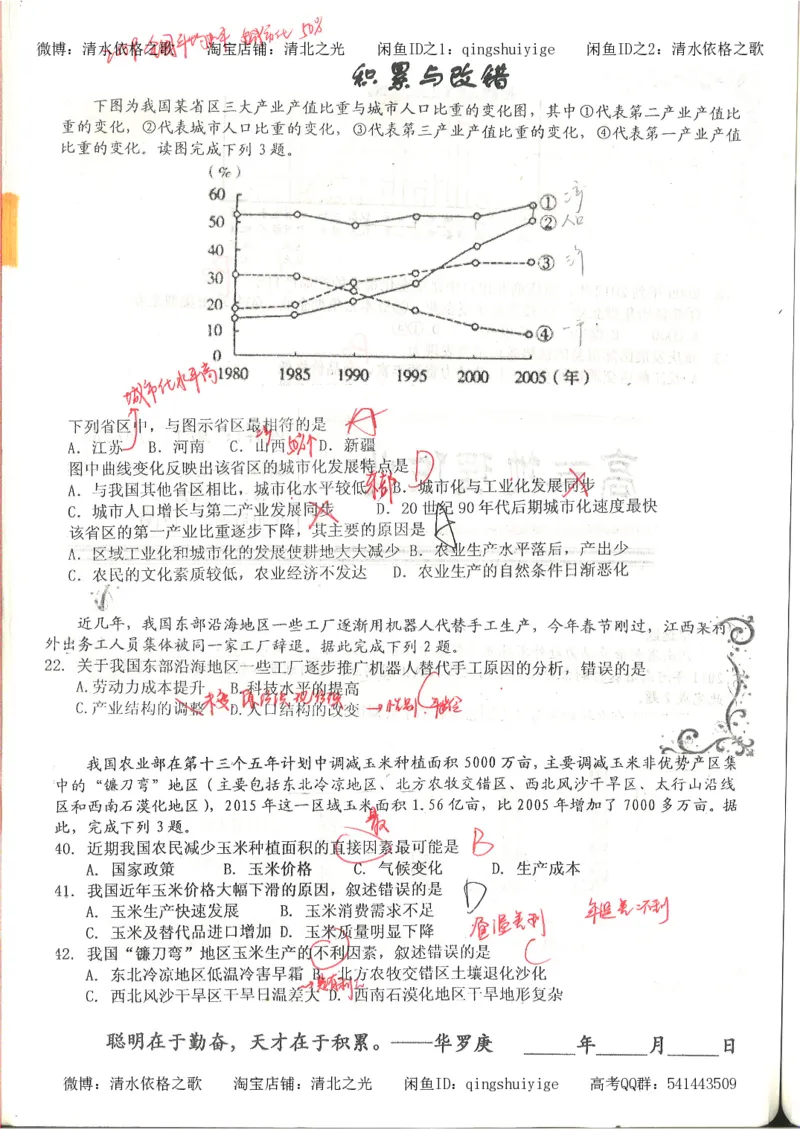 微博：清水依格之歌 淘宝店铺：清北之光 闲鱼ID之1：qingshuiyige 闲鱼ID之2：清水依格之歌
积累与改错
下图为我国某省区三大产业产值比重与城市人口比重的变化图，其中①代表第二产业产值比
重的变化，②代表城市人口比重的变化，③代表第三产业产值比重的变化，④代表第一产业产值
比重的变化。读图完成下列 3 题。
(%)
60
50
40
30
20
10
0
① 
② 人口
③
④ 一产
1980 1985 1990 1995 2000 2005 (年)
城市化水平高
下列省区中，与图示省区最相符的是 A
A．江苏 B．河南 C．山西 D．新疆
图中曲线变化反映出该省区的城市化发展特点是 D
A．与我国其他省区相比，城市化水平较低 B．城市化与工业化发展同步
C．城市人口增长与第二产业发展同步 D．20 世纪 90 年代后期城市化速度最快
该省区的第一产业比重逐步下降，其主要的原因是 A
A．区域工业化和城市化的发展使耕地大大减少 B．农业生产水平落后，产出少
C．农民的文化素质较低，农业经济不发达 D．农业生产的自然条件日渐恶化
近几年，我国东部沿海地区一些工厂逐渐用机器人代替手工生产，今年春节刚过，江西某村
外出务工人员集体被同一家工厂辞退。据此完成下列 2 题。
22．关于我国东部沿海地区一些工厂逐步推广机器人替代手工原因的分析，错误的是
A.劳动力成本提升 B.科技水平的提高
C.产业结构的调整 D.人口结构的改变
我国农业部在第十三个五年计划中调减玉米种植面积 5000 万亩，主要调减玉米非优势产区集
中的“镰刀弯”地区（主要包括东北冷凉地区、北方农牧交错区、西北风沙干旱区、太行山沿线
区和西南石漠化地区），2015 年这一区域玉米面积 1.56 亿亩，比 2005 年增加了 7000 多万亩。据
此，完成下列 3 题。
40．近期我国农民减少玉米种植面积的直接因素最可能是 B
A．国家政策 B．玉米价格 C．气候变化 D．生产成本
41．我国近年玉米价格大幅下滑的原因，叙述错误的是 D
A．玉米生产快速发展 B．玉米消费需求不足
C．玉米及替代品进口增加 D．玉米质量明显下降
42．我国“镰刀弯”地区玉米生产的不利因素，叙述错误的是 C
A．东北冷凉地区低温冷害早霜 B．北方农牧交错区土壤退化沙化
C．西北风沙干旱区干旱日温差大 D．西南石漠化地区干旱地形复杂
聪明在于勤奋，天才在于积累。——华罗庚 _____年_____月_____日
微博：清水依格之歌 淘宝店铺：清北之光 闲鱼ID：qingshuiyige 高考QQ群：541443509